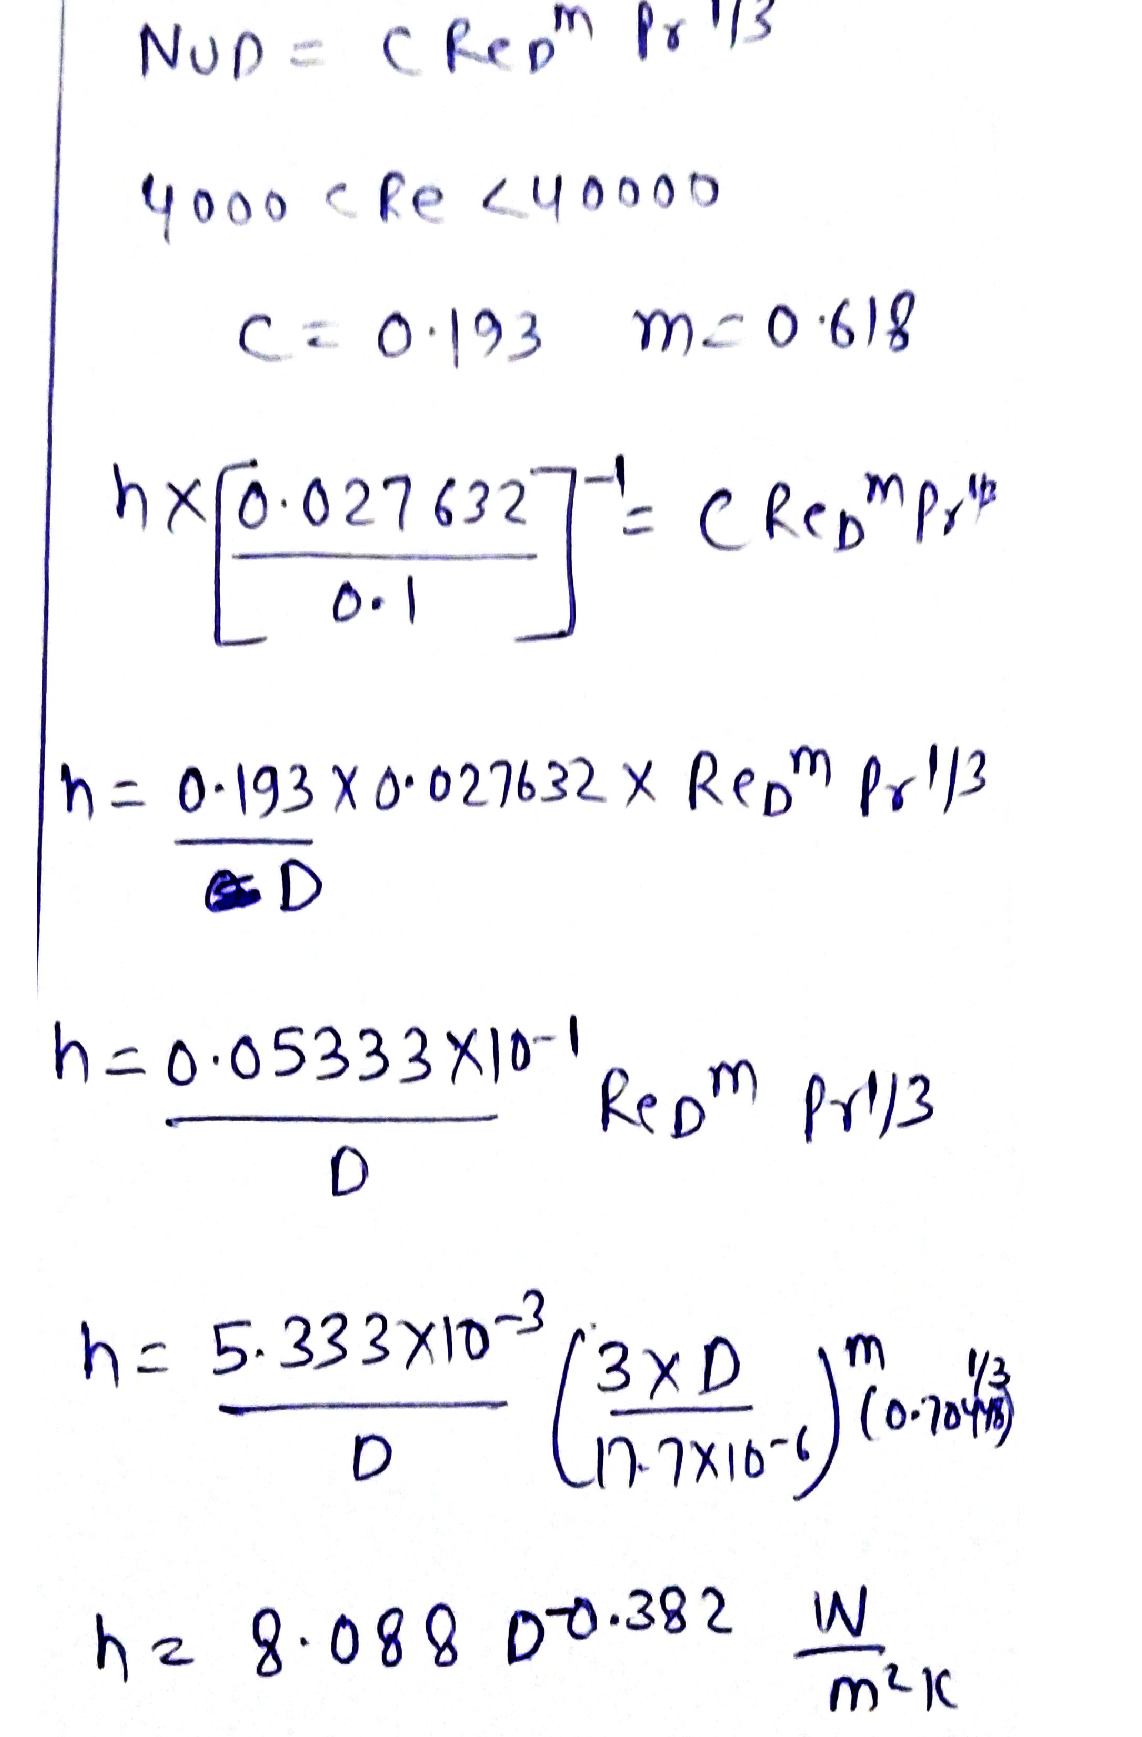 NUD = C ReD^m Pr^1/3
4000 < Re < 40000
C = 0.193 m = 0.618
h × [0.027632 / 0.1]^-1 = C ReD^m Pr^1/3
h = 0.193 × 0.027632 × ReD^m Pr^1/3
D
h = 0.05333 × 10^-1 ReD^m Pr^1/3
D
h = 5.333 × 10^-3 (3 × D / 17.7 × 10^-6)^m (0.70448)^1/3
D
h = 8.088 D^-0.382 W / m^2 K